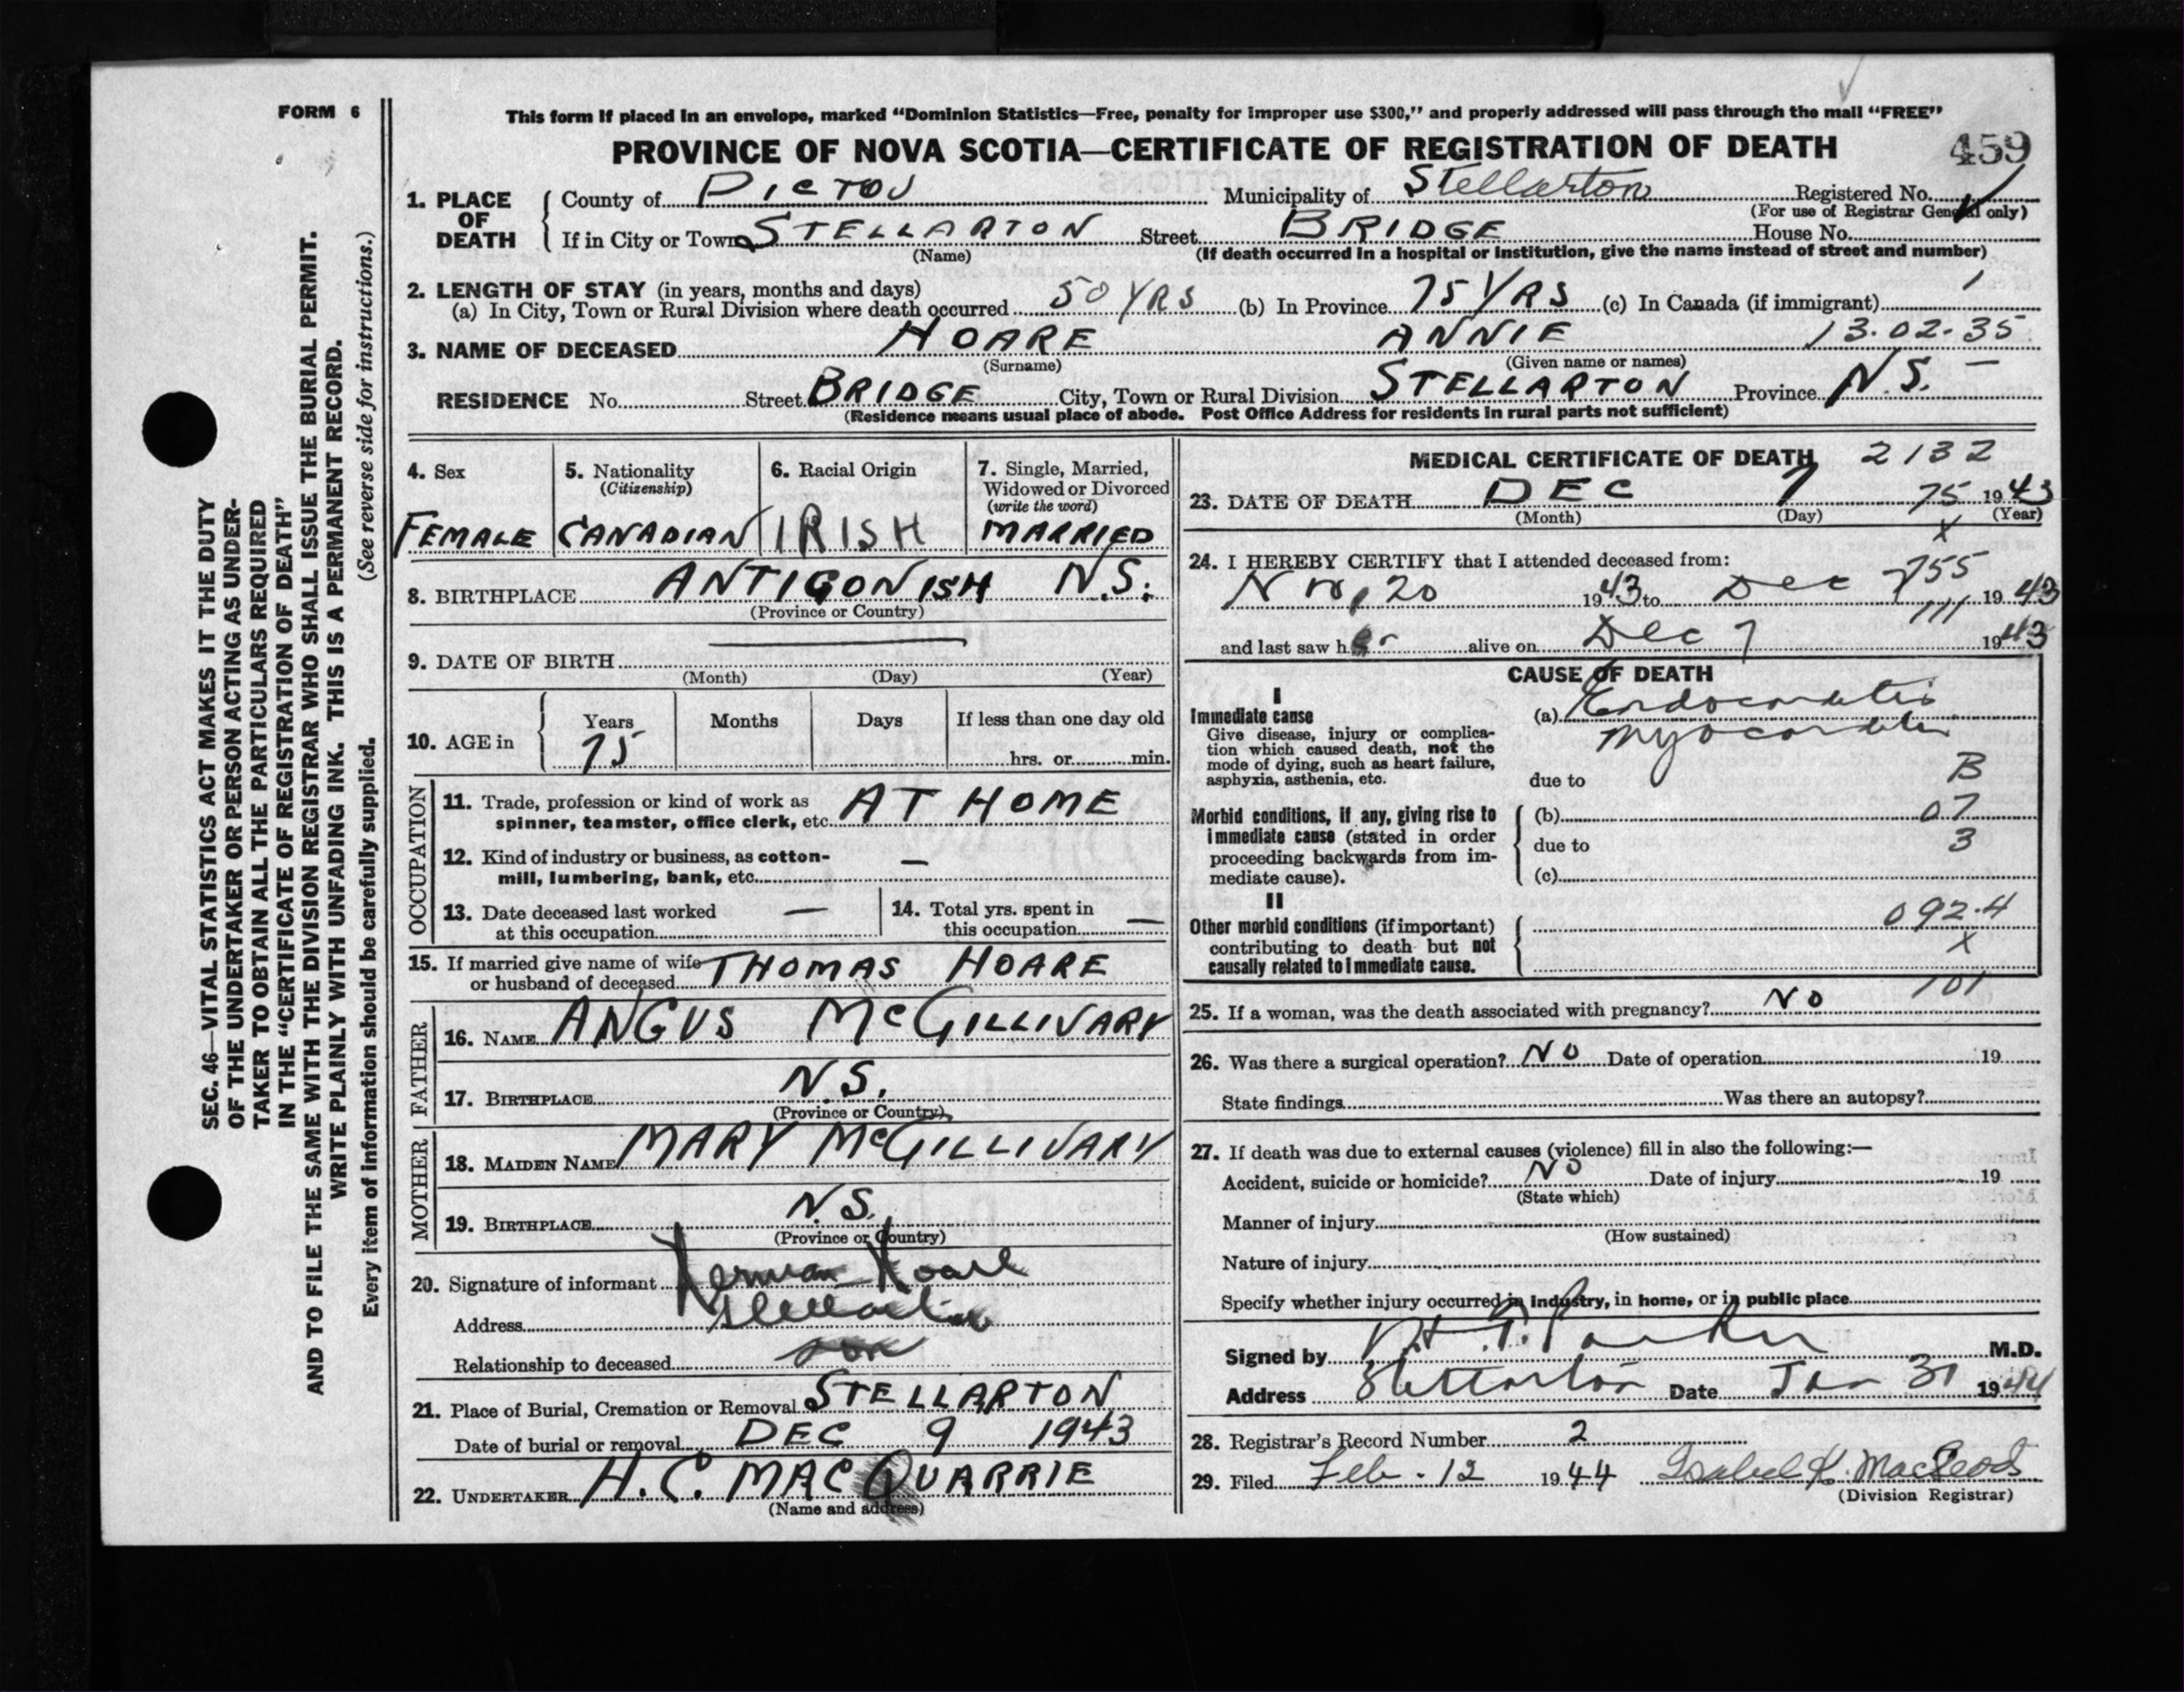 FORM 6
This form if placed in an envelope, marked "Dominion Statistics—Free, penalty for improper use $300," and properly addressed will pass through the mail "FREE"
PROVINCE OF NOVA SCOTIA—CERTIFICATE OF REGISTRATION OF DEATH
459
1. PLACE OF DEATH
County of PICTOU Municipality of Stellarton Registered No.
(For use of Registrar General only)
If in City or Town STELLARTON Street BRIDGE House No.
(Name) (If death occurred in a hospital or institution, give the name instead of street and number)
2. LENGTH OF STAY (in years, months and days)
(a) In City, Town or Rural Division where death occurred 50 YRS (b) In Province 75 YRS (c) In Canada (if immigrant) 1
3. NAME OF DECEASED HOARE ANNIE 13.02.35
(Surname) (Given name or names)
RESIDENCE No. Street BRIDGE City, Town or Rural Division STELLARTON Province N.S. —
(Residence means usual place of abode. Post Office Address for residents in rural parts not sufficient)
SEC. 46—VITAL STATISTICS ACT MAKES IT THE DUTY
OF THE UNDERTAKER OR PERSON ACTING AS UNDER-
TAKER TO OBTAIN ALL THE PARTICULARS REQUIRED
IN THE "CERTIFICATE OF REGISTRATION OF DEATH"
AND TO FILE THE SAME WITH THE DIVISION REGISTRAR WHO SHALL ISSUE THE BURIAL PERMIT.
WRITE PLAINLY WITH UNFADING INK. THIS IS A PERMANENT RECORD.
Every item of information should be carefully supplied. (See reverse side for instructions.)
4. Sex 5. Nationality 6. Racial Origin 7. Single, Married,
(Citizenship) Widowed or Divorced
(write the word)
FEMALE CANADIAN IRISH MARRIED
8. BIRTHPLACE ANTIGONISH N.S.
(Province or Country)
9. DATE OF BIRTH
(Month) (Day) (Year)
10. AGE in Years Months Days If less than one day old
75 hrs. or min.
OCCUPATION
11. Trade, profession or kind of work as
spinner, teamster, office clerk, etc. AT HOME
12. Kind of industry or business, as cotton-
mill, lumbering, bank, etc. —
13. Date deceased last worked
at this occupation —
14. Total yrs. spent in
this occupation —
15. If married give name of wife
or husband of deceased THOMAS HOARE
FATHER
16. NAME ANGUS McGILLIVARY
17. BIRTHPLACE N.S.
(Province or Country)
MOTHER
18. MAIDEN NAME MARY McGILLIVARY
19. BIRTHPLACE N.S.
(Province or Country)
20. Signature of informant Herman Hoare
Address Stellarton
Relationship to deceased son
21. Place of Burial, Cremation or Removal STELLARTON
Date of burial or removal DEC 9 1943
22. UNDERTAKER H.C. MACQUARRIE
(Name and address)
MEDICAL CERTIFICATE OF DEATH 2132
23. DATE OF DEATH DEC 7 75 1943
(Month) (Day) (Year)
X
24. I HEREBY CERTIFY that I attended deceased from:
Nov, 20 1943 to Dec 755 1943
111
and last saw her alive on Dec 7 1943
CAUSE OF DEATH
I
Immediate cause
Give disease, injury or complica-
tion which caused death, not the
mode of dying, such as heart failure,
asphyxia, asthenia, etc.
(a) Endocarditis
Myocarditis
due to B
Morbid conditions, if any, giving rise to
immediate cause (stated in order
proceeding backwards from im-
mediate cause).
(b) 07
due to 3
(c)
II
Other morbid conditions (if important)
contributing to death but not
causally related to immediate cause.
092.4
X
101
25. If a woman, was the death associated with pregnancy? NO
26. Was there a surgical operation? NO Date of operation 19
State findings Was there an autopsy?
27. If death was due to external causes (violence) fill in also the following:—
Accident, suicide or homicide? NO Date of injury 19
(State which)
Manner of injury
(How sustained)
Nature of injury
Specify whether injury occurred in industry, in home, or in public place
Signed by Parker M.D.
Address Stellarton Date Jan 31 1944
28. Registrar's Record Number 2
29. Filed Feb. 12 1944 Isabel K. MacLeod
(Division Registrar)